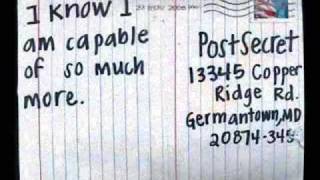 I know I
am capable
of so much
more.
PostSecret
13345 Copper
Ridge Rd.
Germantown, MD
20874-345